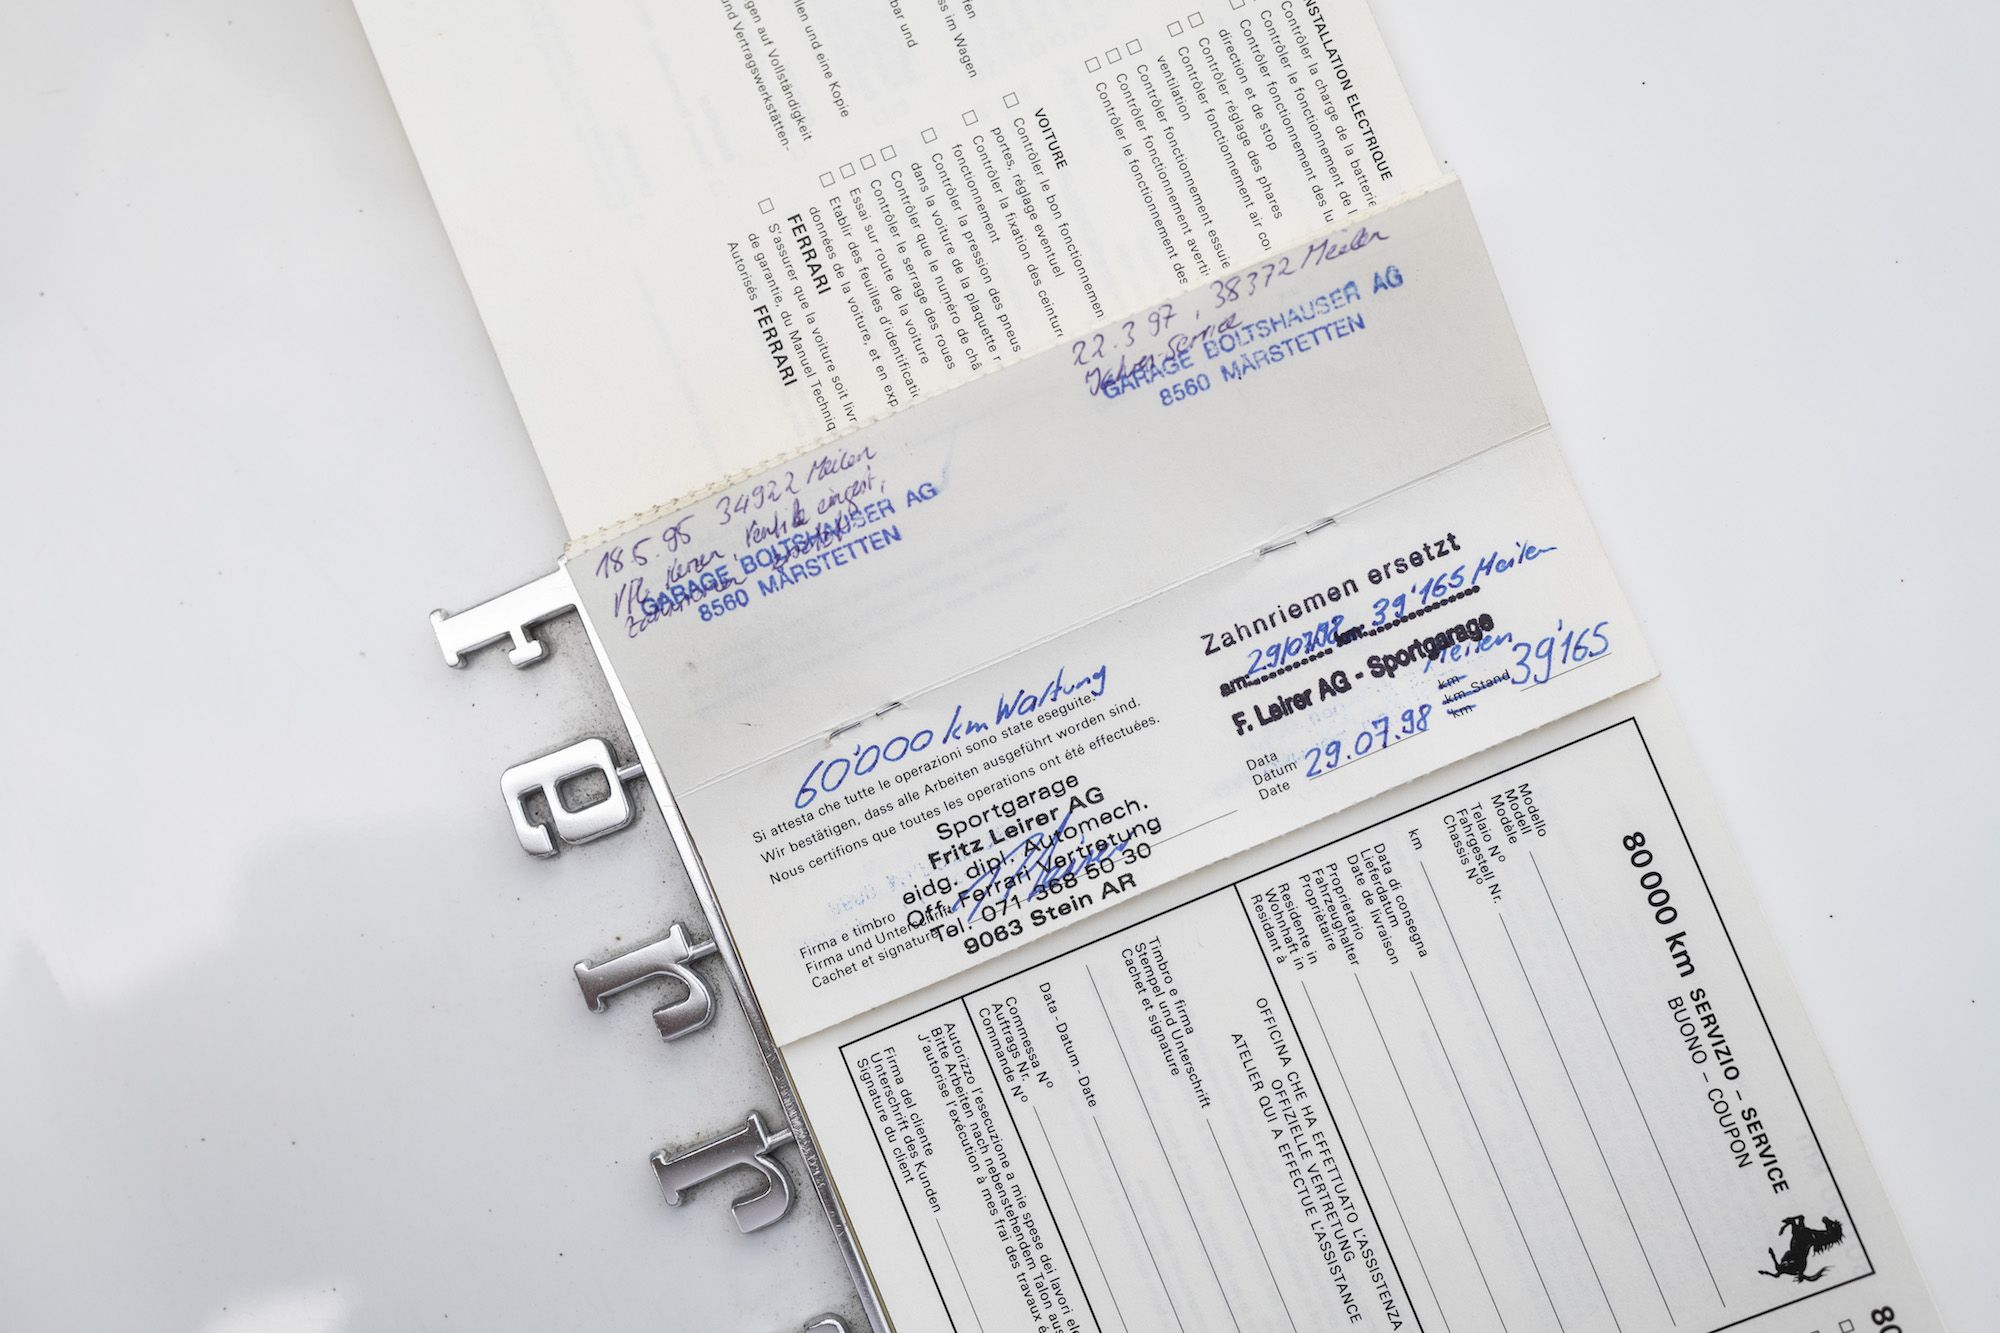 18.5.95 34922 Meilen
Ventile eingest,
GARAGE BOLTSHAUSER AG
8560 MÄRSTETTEN
22.3.97, 38372 Meilen
Jahres-Service
GARAGE BOLTSHAUSER AG
8560 MÄRSTETTEN
60'000 km Wartung
Si attesta che tutte le operazioni sono state eseguite.
Wir bestätigen, dass alle Arbeiten ausgeführt worden sind.
Nous certifions que toutes les opérations ont été effectuées.
Sportgarage
Fritz Leirer AG
eidg. dipl. Automech.
Off. Ferrari Vertretung
Tel. 071 368 50 30
9063 Stein AR
Firma e timbro
Firma und Unterschrift
Cachet et signature
Zahnriemen ersetzt
am: 29/07/98 km: 39'165 Meilen
F. Leirer AG - Sportgarage
Meilen
km
km Stand 39'165
km
Data
Datum 29.07.98
Date
INSTALLATION ELECTRIQUE
Contrôler la charge de la batterie
Contrôler le fonctionnement de l
Contrôler fonctionnement des lu
direction et de stop
Contrôler réglage des phares
Contrôler fonctionnement air co
ventilation
Contrôler fonctionnement essuie
Contrôler fonctionnement averti
Contrôler le fonctionnement des
VOITURE
Contrôler le bon fonctionnemen
portes, réglage eventuel
Contrôler la fixation des ceintur
fonctionnement
Contrôler la pression des pneus
dans la voiture de la plaquette r
Contrôler que le numéro de châ
Contrôler le serrage des roues
Essai sur route de la voiture
Etablir des feuilles d'identificati
données de la voiture, et en exp
FERRARI
S'assurer que la voiture soit livr
de garantie, du Manuel Techniq
Autorisés FERRARI
ss im Wagen
bar und
llen und eine Kopie
gen auf Vollständigkeit
und Vertragswerkstätten-
80000 km SERVIZIO – SERVICE
BUONO – COUPON
Modello
Modell
Modèle
Telaio N°
Fahrgestell Nr.
Chassis N°
km
Data di consegna
Lieferdatum
Date de livraison
Proprietario
Fahrzeughalter
Propriétaire
Residente in
Wohnhaft in
Residant à
OFFICINA CHE HA EFFETTUATO L'ASSISTENZA
OFFIZIELLE VERTRETUNG
ATELIER QUI A EFFECTUE L'ASSISTANCE
Timbro e firma
Stempel und Unterschrift
Cachet et signature
Data - Datum - Date
Commessa N°
Auftrags Nr.
Commande N°
Autorizzo l'esecuzione a mie spese dei lavori ele
Bitte Arbeiten nach nebenstehendem Talon aus
J'autorise l'exécution à mes frai des travaux é
Firma del cliente
Unterschrift des Kunden
Signature du client
80